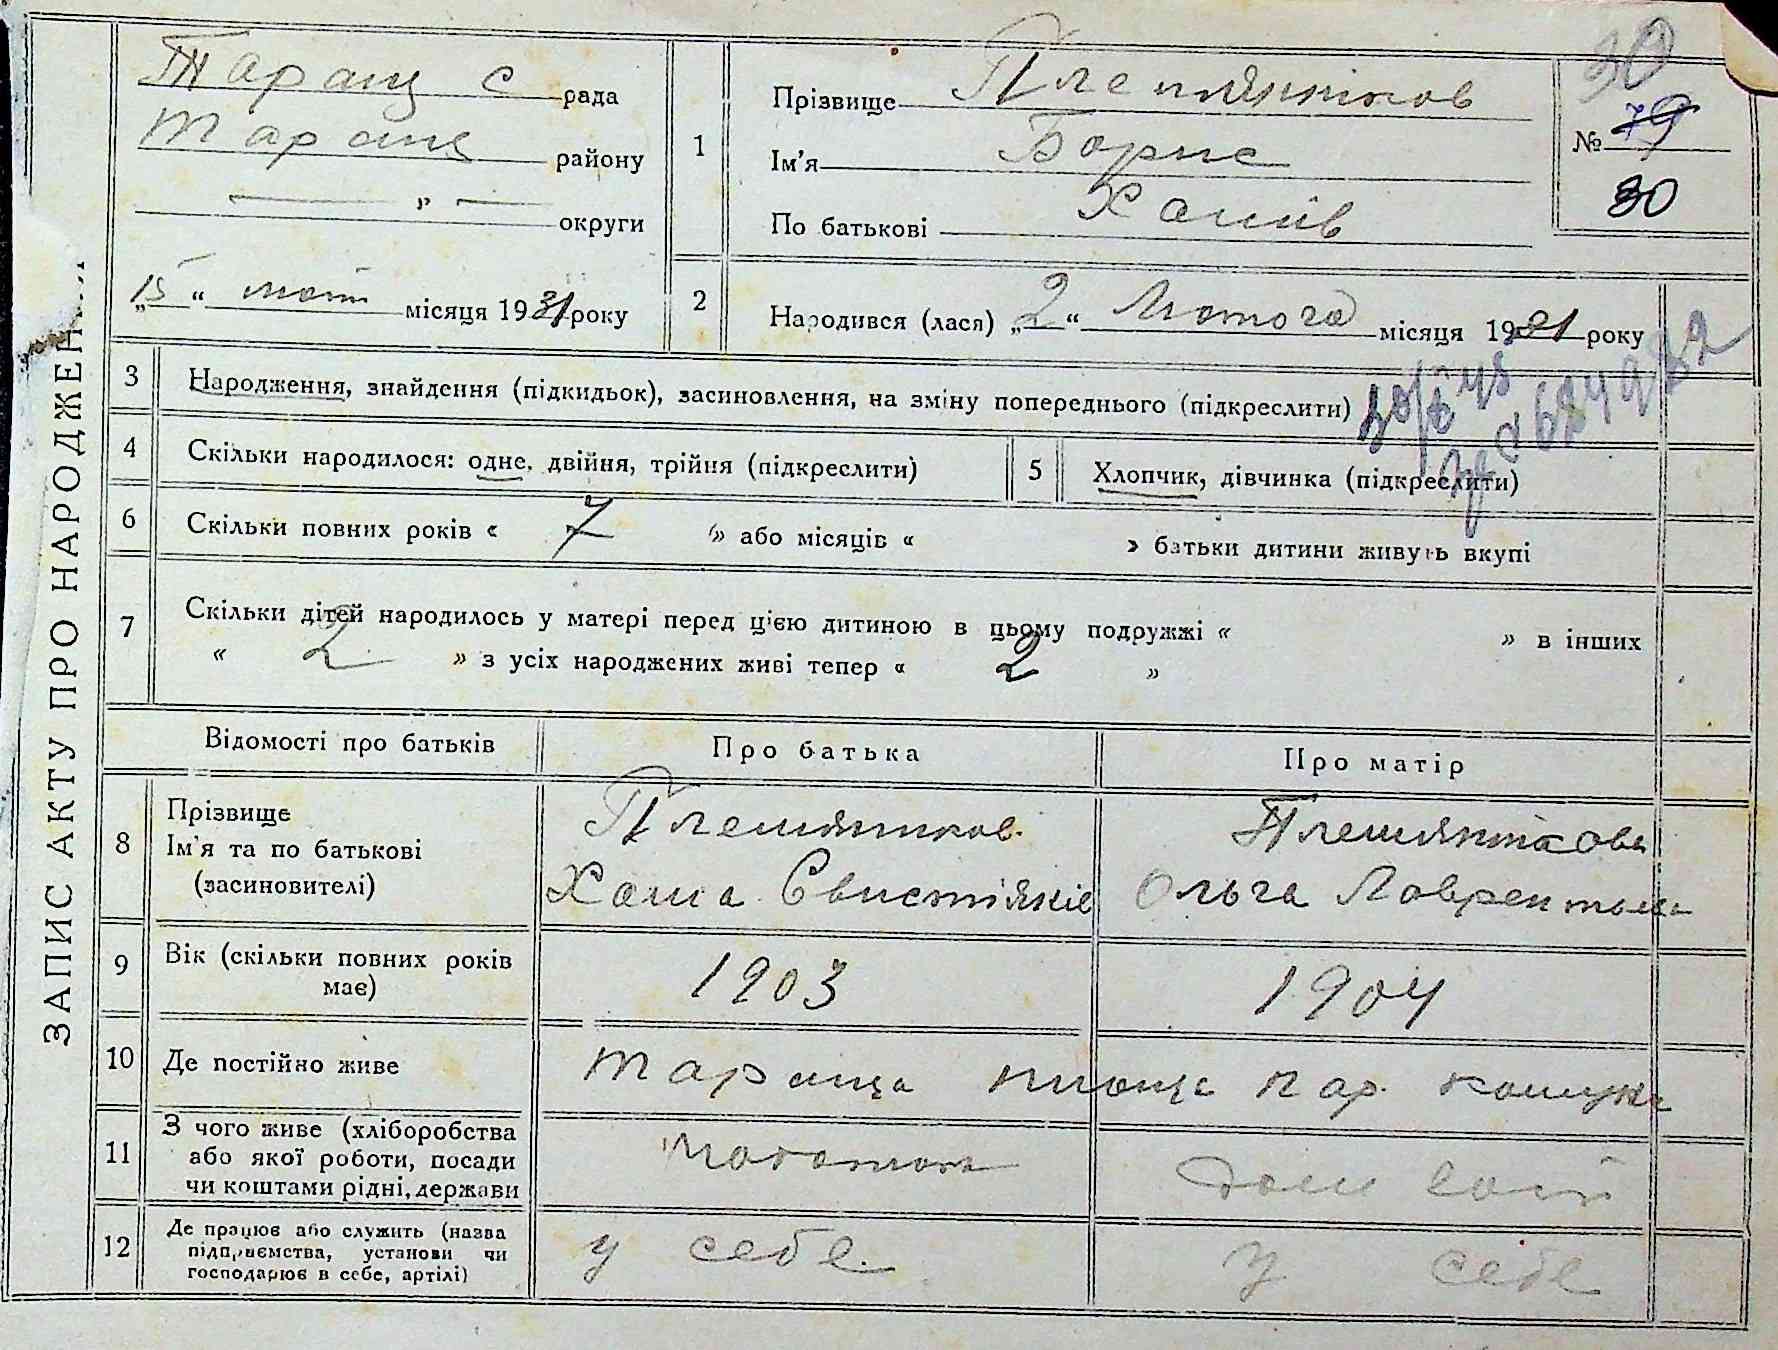 ЗАПИС АКТУ ПРО НАРОДЖЕННЯ
Таращ с рада
Таращ району
— " — округи
„15“ лют місяця 1931 року
1
Прізвище Племянніков
Ім'я Борис
По батькові Хамів
30
№ 79
30
2
Народився (лася) „2“ Лютого місяця 1931 року
3 Народження, знайдення (підкидьок), засиновлення, на зміну попереднього (підкреслити)
4 Скільки народилося: одне, двійня, трійня (підкреслити)
5 Хлопчик, дівчинка (підкреслити)
6 Скільки повних років « 7 » або місяців « » батьки дитини живуть вкупі
7 Скільки дітей народилось у матері перед цією дитиною в цьому подружжі « » в інших
« 2 » з усіх народжених живі тепер « 2 »
Відомості про батьків Про батька Про матір
8 Прізвище
Ім'я та по батькові
(засиновителі)
Племянников
Хама
Племяннікова
Ольга Лаврентьевна
9 Вік (скільки повних років має)
1903 1904
10 Де постійно живе
Тараща площа Пар. комуни
11 З чого живе (хліборобства
або якої роботи, посади
чи коштами рідні, держави
дом
12 Де працює або служить (назва
підприємства, установи чи
господарює в себе, артілі)
у себе у себе